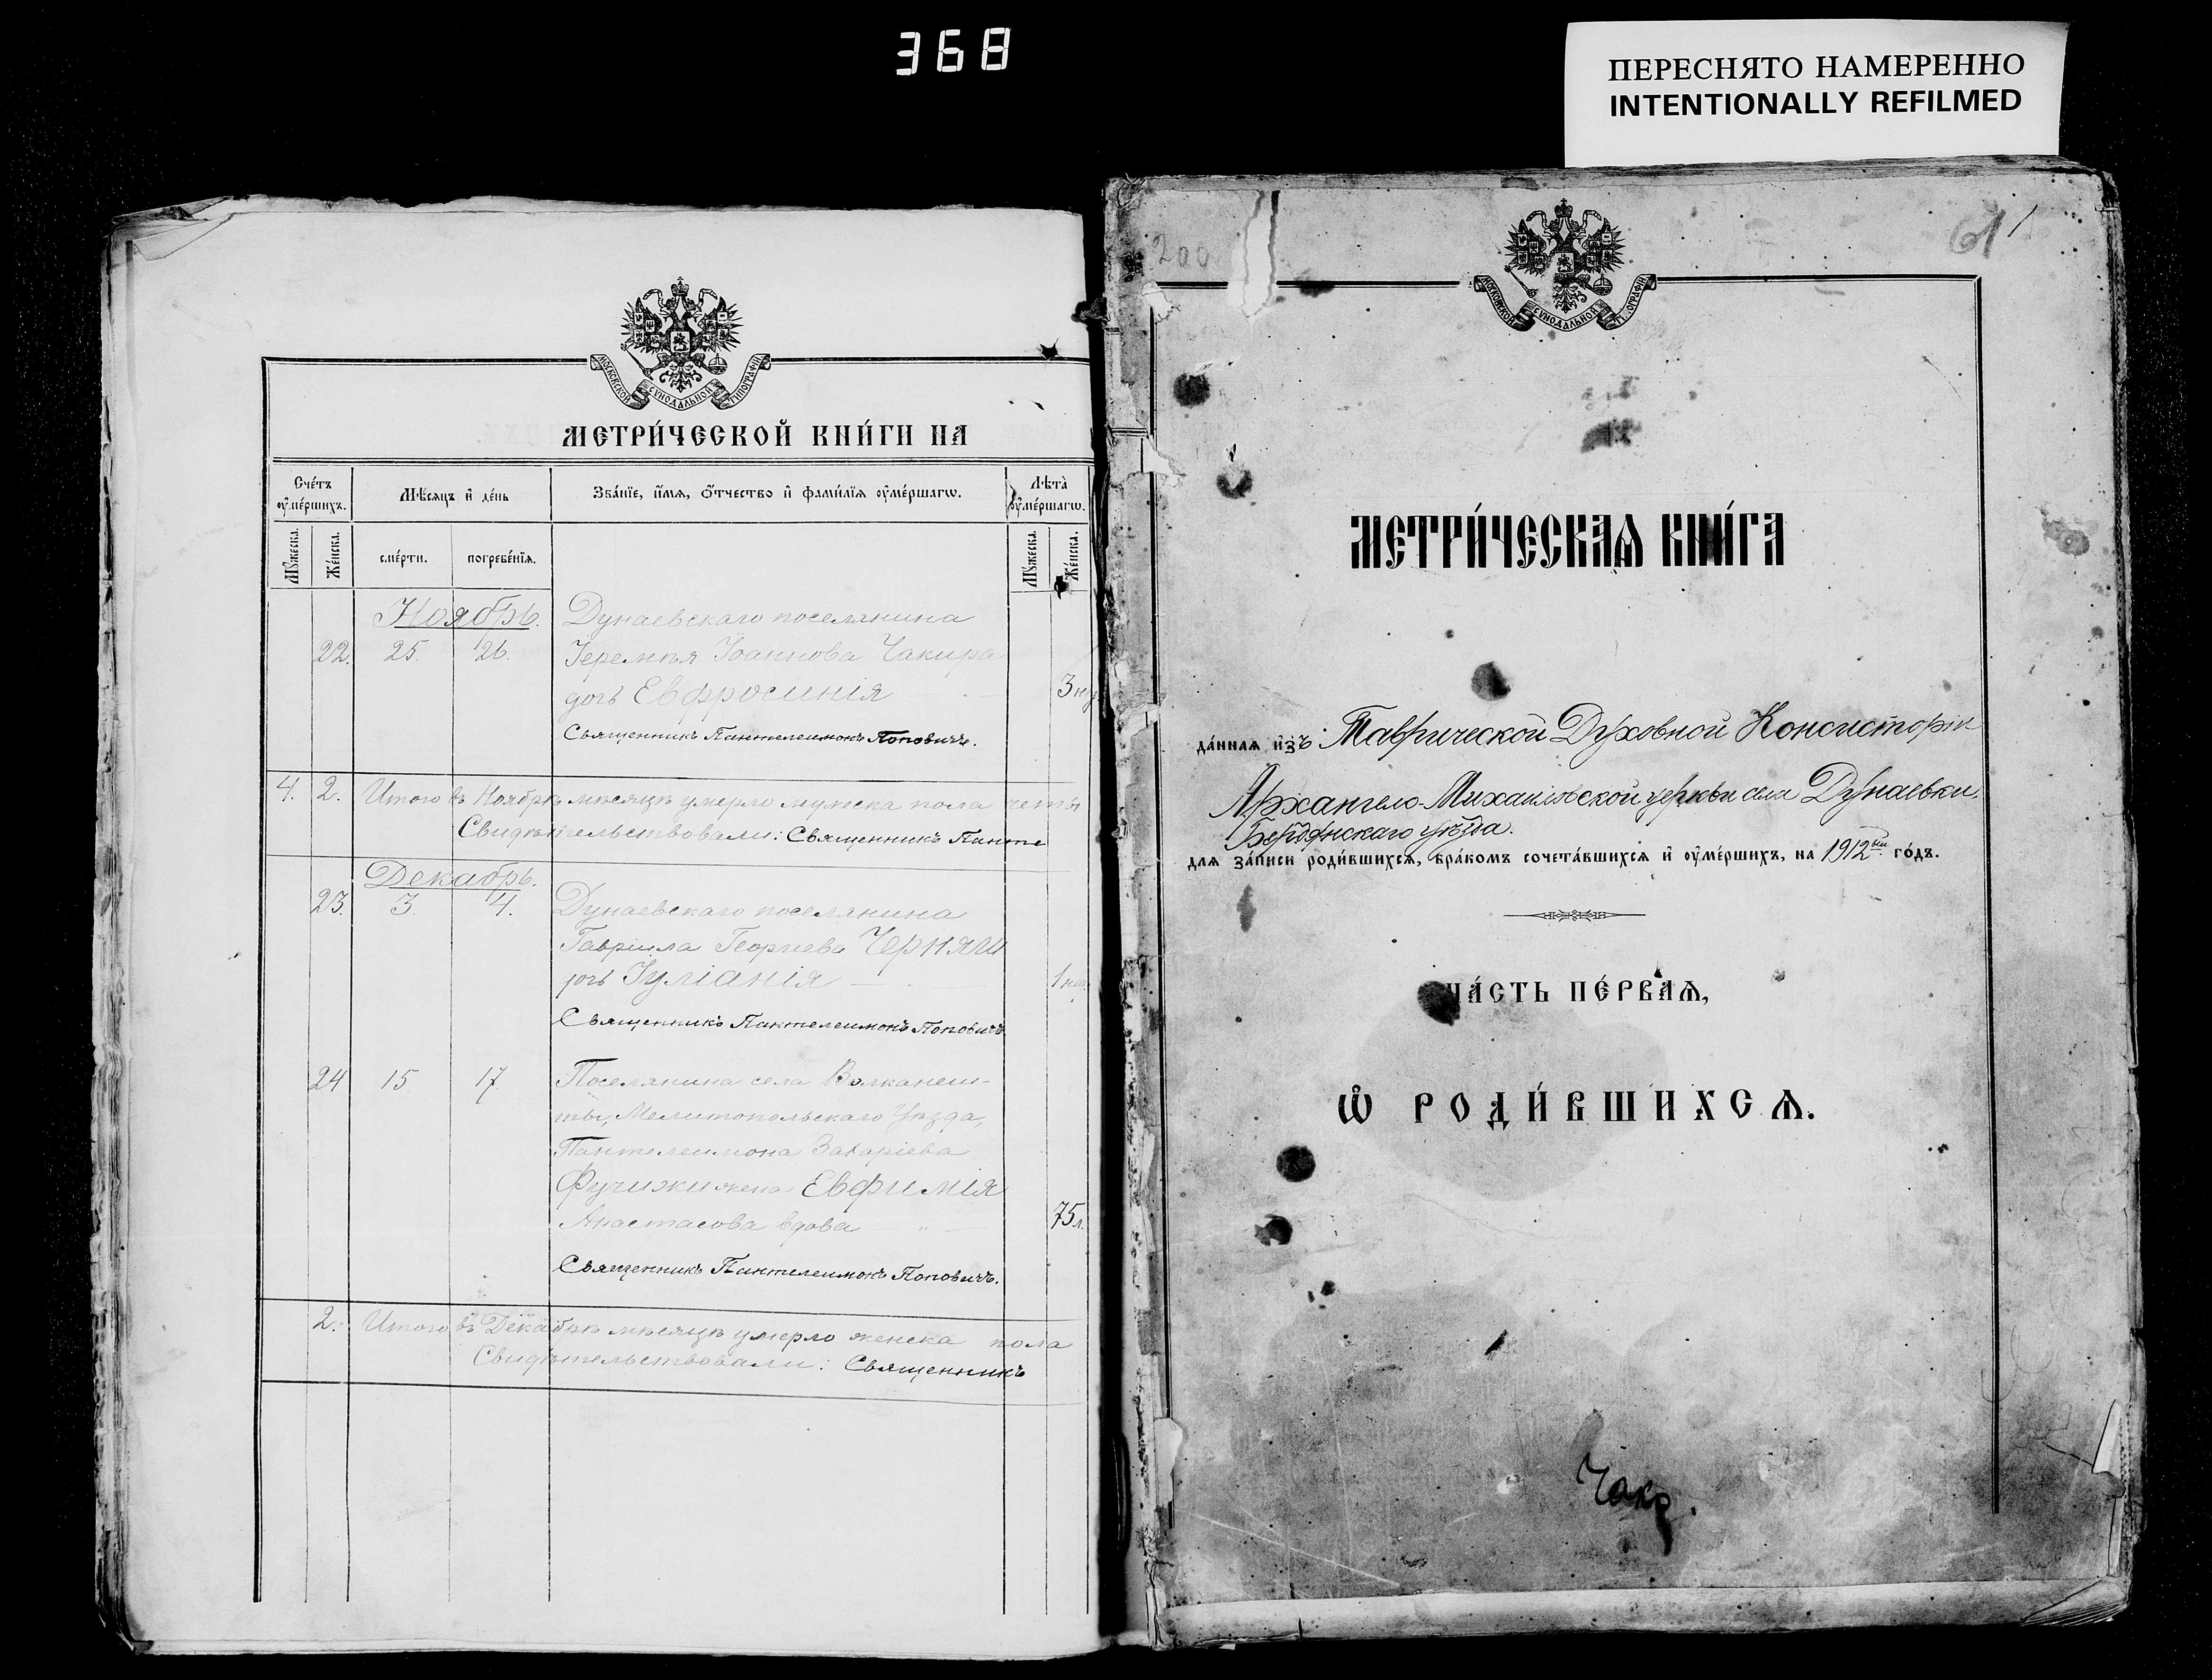 368
ПЕРЕСНЯТО НАМЕРЕННО
INTENTIONALLY REFILMED
МОСКОВСКОЙ СΥНОДАЛЬНОЙ ТИПОГРАФІИ
МЕТРИ́ЧЕСКОЙ КНИ́ГИ НА
Сче́тъ ᲂу҆ме́ршихъ.
Мѣ́сяцъ и҆ де́нь
Зва́нїе, и҆́мѧ, ѻ҆́тчество и҆ фами́лїѧ ᲂу҆ме́ршагѡ.
Лѣ̀та ᲂу҆ме́ршагѡ.
Мꙋ́жеска.
Же́нска.
сме́рти.
погребе́нїѧ.
Мꙋ́жеска.
Же́нска.
Ноябрь.
Дунаевскаго поселянина
22. 25. 26. Іеремія Іоаннова Чакира
дочь Евфросинія 3
Священникъ Пантелеимонъ Поповичъ.
4. 2. Итого въ Ноябрѣ мѣсяцѣ умерло мужеска пола четы
Свидѣтельствовали: Священникъ Панте
Декабрь.
23. 3. 4. Дунаевскаго поселянина
Гавріила Георгіева Черняш
дочь Іуліанія 1
Священникъ Пантелеимонъ Поповичъ
24 15 17 Поселянина села Волканеш-
ты, Мелитопольскаго Уѣзда,
Пантелеимона Захаріева
Фучижи жена Евфимія
Анастасова вдова — „ — 75 л.
Священникъ Пантелеимонъ Поповичъ.
2. Итого въ Декабрѣ мѣсяцѣ умерло женска пола
Свидѣтельствовали: Священникъ
200
61
МОСКОВСКОЙ СΥНОДАЛЬНОЙ ТИПОГРАФІИ
МЕТРИ́ЧЕСКАѦ КНИ́ГА
да́нная и҆зъ Таврической Духовной Консисторіи
Архангело-Михаиловской церкви села Дунаевки,
Бердянскаго уѣзда.
для за́писи роди́вшихсѧ, бра́комъ сочета́вшихсѧ и҆ ᲂу҆ме́ршихъ, на 1912ый го́дъ.
ЧА́СТЬ ПЕ́РВАѦ,
Ѡ҆ РОДИ́ВШИХСѦ.